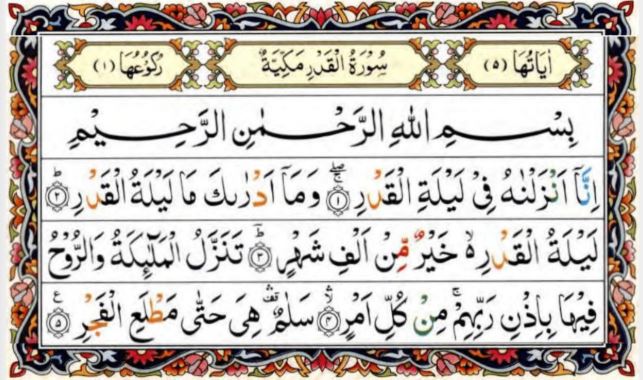 اٰيَاتُهَا (٥) سُوْرَةُ الْقَدْرِ مَكِّيَّةٌ رُكُوْعُهَا (١)
بِسْمِ اللّٰهِ الرَّحْمٰنِ الرَّحِيْمِ
اِنَّاۤ اَنْزَلْنٰهُ فِیْ لَيْلَةِ الْقَدْرِ ۚۖ ﴿١﴾ وَمَاۤ اَدْرٰىكَ مَا لَيْلَةُ الْقَدْرِ ؕ ﴿٢﴾
لَيْلَةُ الْقَدْرِ ۙ خَيْرٌ مِّنْ اَلْفِ شَهْرٍ ؕ ﴿٣﴾ تَنَزَّلُ الْمَلٰٓئِكَةُ وَالرُّوْحُ
فِيْهَا بِاِذْنِ رَبِّهِمْ ۚ مِنْ كُلِّ اَمْرٍ ۙۛ ﴿٤﴾ سَلٰمٌ ۛ قف هِیَ حَتّٰی مَطْلَعِ الْفَجْرِ ﴿٥﴾ ع